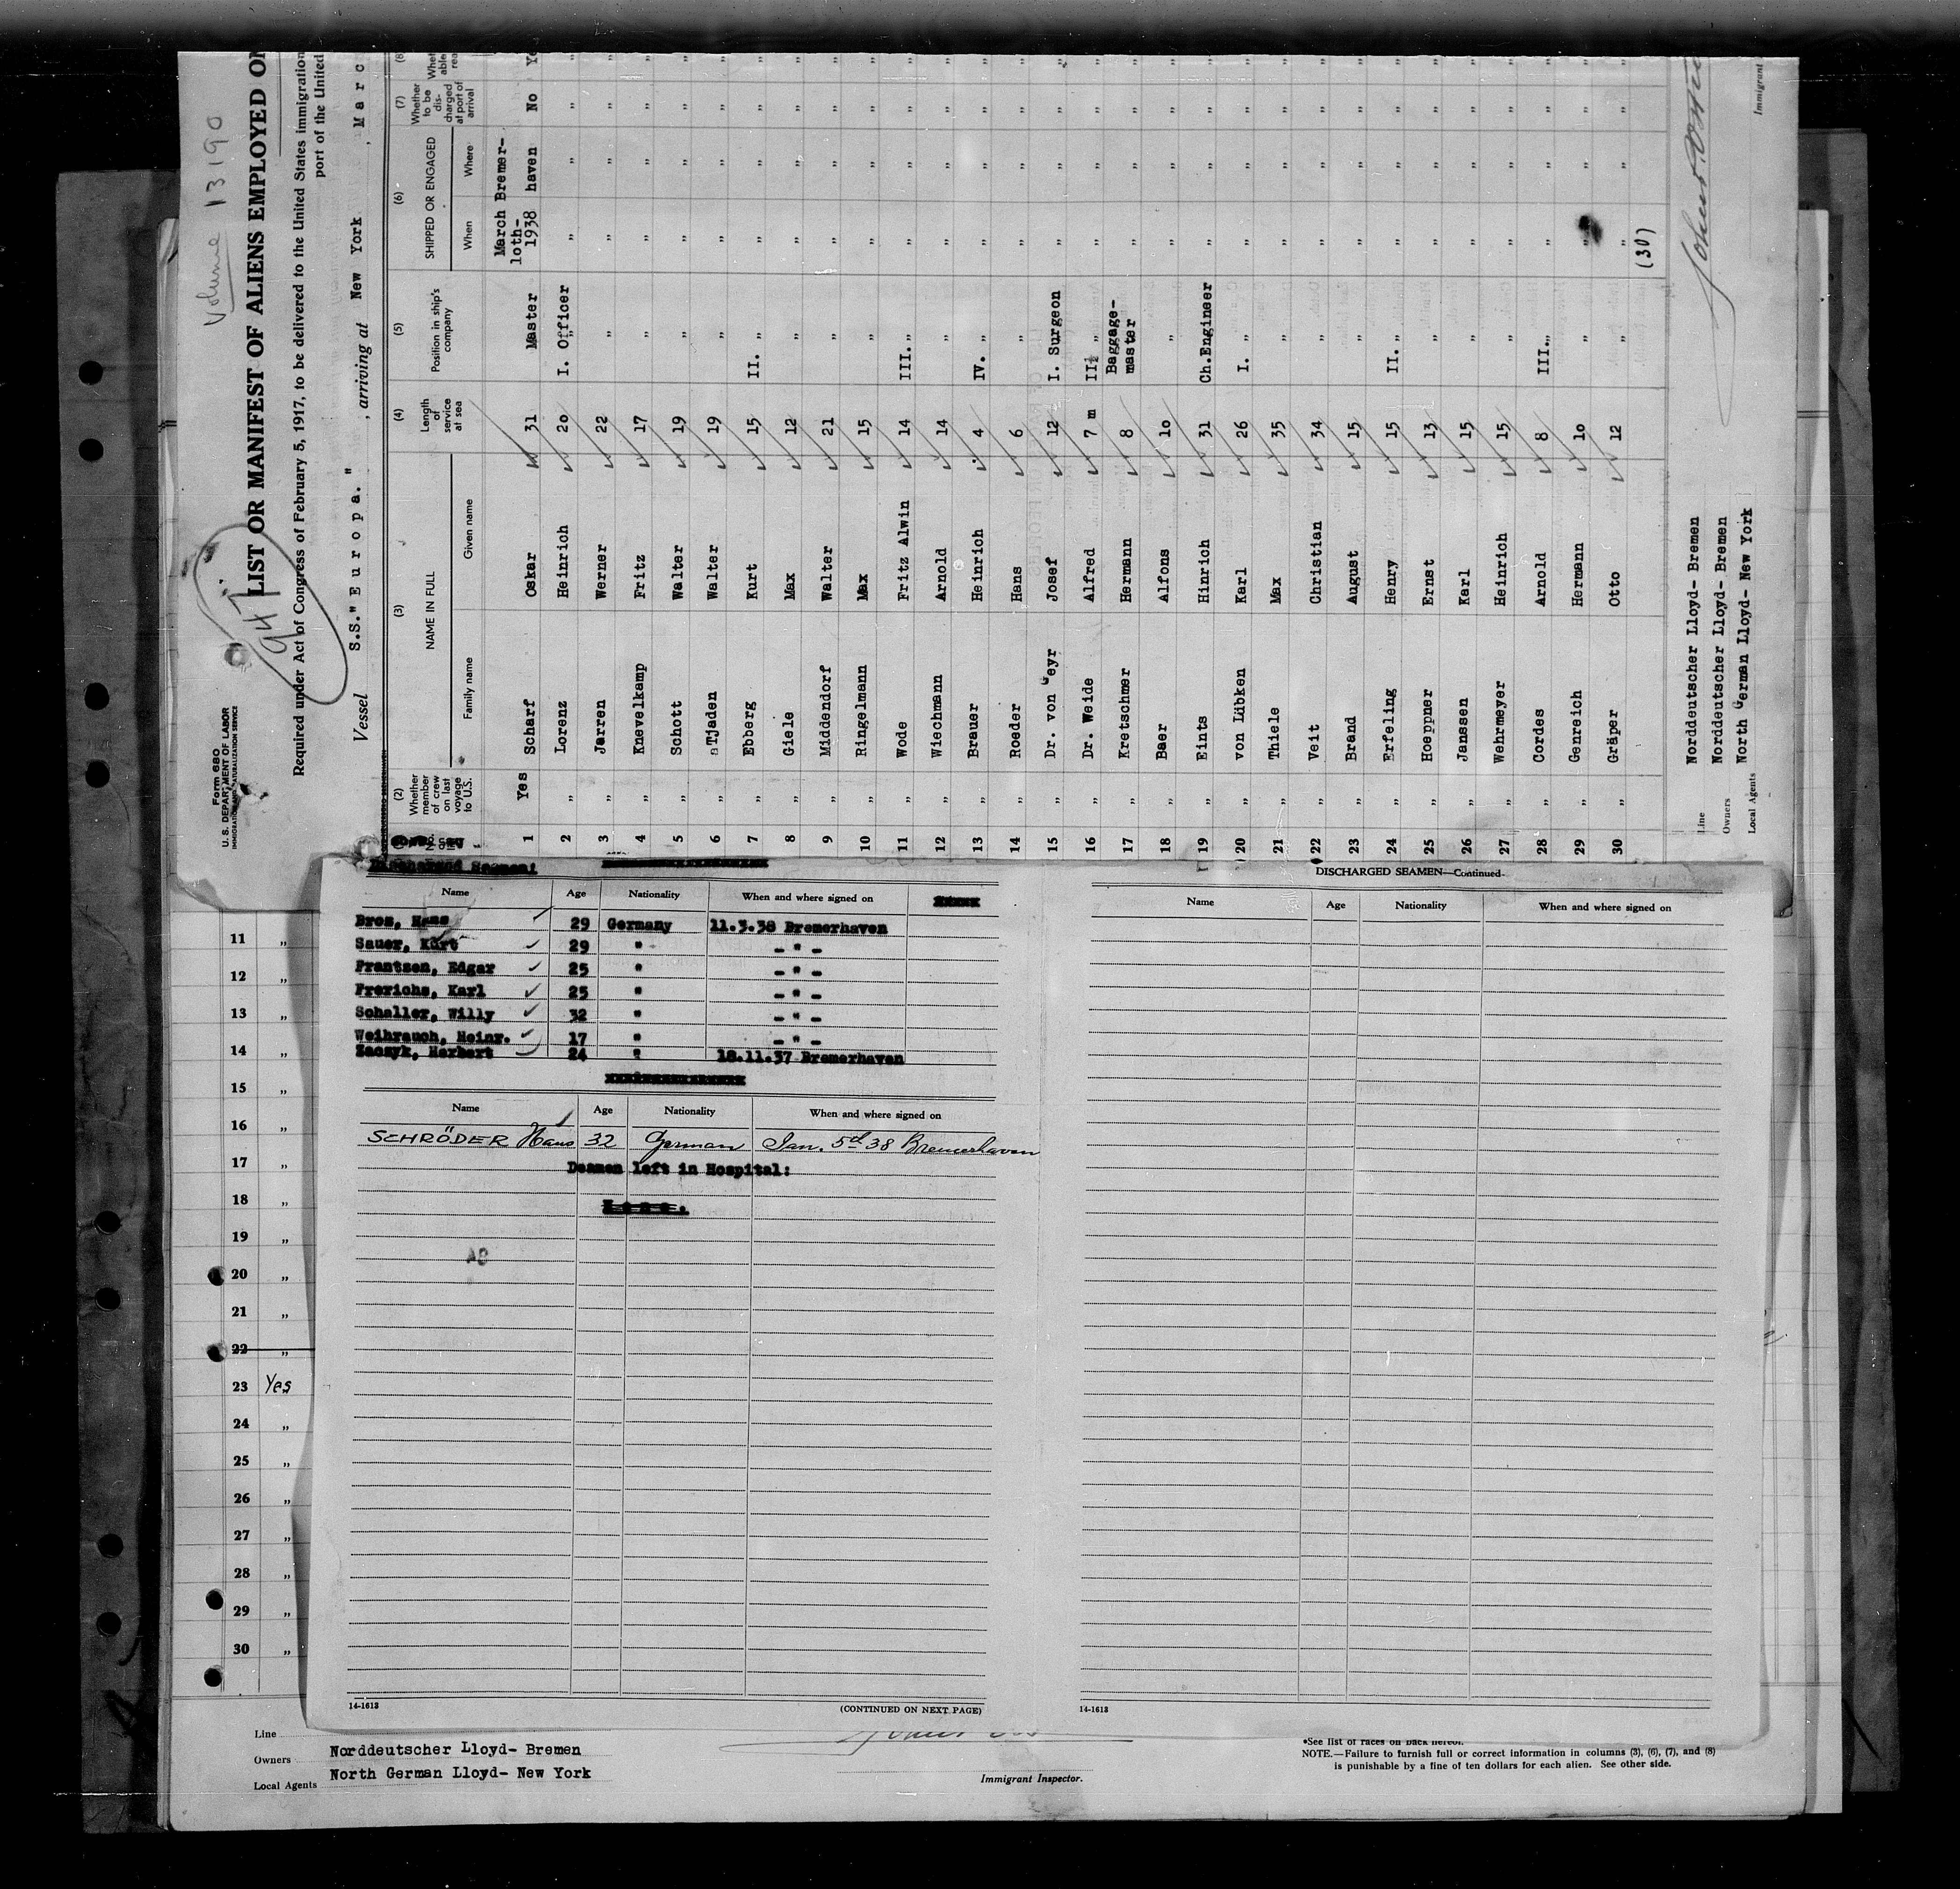 Volume 13190
947
Form 680
U. S. DEPARTMENT OF LABOR
IMMIGRATION AND NATURALIZATION SERVICE
LIST OR MANIFEST OF ALIENS EMPLOYED ON
Required under Act of Congress of February 5, 1917, to be delivered to the United States immigration
port of the United
Vessel S.S."Europa." , arriving at New York , Marc
(2) (3) (4) (5) (6) (7) (8
Whether member of crew on last voyage to U.S. NAME IN FULL Length of service at sea Position in ship's company SHIPPED OR ENGAGED Whether to be discharged at port of arrival
Family name Given name When Where
1 Yes Scharf Oskar 31 Master March loth- 1938 Bremer-haven No Ye
2 „ Lorenz Heinrich 2o I. Officer „ „ „ „
3 „ Jarren Werner 22 „ „ „ „ „
4 „ Knevelkamp Fritz 17 „ „ „ „ „
5 „ Schott Walter 19 „ „ „ „ „
6 „ Tjaden Walter 19 „ „ „ „ „
7 „ Ebberg Kurt 15 II. „ „ „ „ „
8 „ Giele Max 12 „ „ „ „ „
9 „ Middendorf Walter 21 „ „ „ „ „
10 „ Ringelmann Max 15 „ „ „ „ „
11 „ Wode Fritz Alwin 14 III. „ „ „ „ „
12 „ Wiechmann Arnold 14 „ „ „ „ „
13 „ Brauer Heinrich 4 IV. „ „ „ „ „
14 „ Roeder Hans 6 „ „ „ „ „
15 „ Dr. von Geyr Josef 12 I. Surgeon „ „ „ „
16 „ Dr. Weide Alfred 7 m II. „ „ „ „ „
17 „ Kretschmer Hermann 8 Baggage-master „ „ „ „
18 „ Baer Alfons 1o „ „ „ „ „
19 „ Eints Hinrich 31 Ch.Engineer „ „ „ „
20 „ von Lübken Karl 26 I. „ „ „ „ „
21 „ Thiele Max 35 „ „ „ „ „
22 „ Veit Christian 34 „ „ „ „ „
23 „ Brand August 15 „ „ „ „ „
24 „ Erfeling Henry 15 II. „ „ „ „ „
25 „ Hoeppner Ernst 13 „ „ „ „ „
26 „ Janssen Karl 15 „ „ „ „ „
27 „ Wehrmeyer Heinrich 15 „ „ „ „ „
28 „ Cordes Arnold 8 III. „ „ „ „ „
29 „ Genreich Hermann 1o „ „ „ „ „
30 „ Gräper Otto 12 „ „ „ „ „
(30)
Line Norddeutscher Lloyd- Bremen
Owners Norddeutscher Lloyd- Bremen
Local Agents North German Lloyd- New York
Immigrant
Discharged Seamen:
Name Age Nationality When and where signed on
Brom, Hans 29 Germany 11.3.38 Bremerhaven
Sauer, Kurt 29 " - " -
Frantzen, Edgar 25 " - " -
Frerichs, Karl 25 " - " -
Schaller, Willy 32 " - " -
Weihrauch, Heinr. 17 " - " -
Zaczyk, Herbert 24 " 18.11.37 Bremerhaven
Name Age Nationality When and where signed on
SCHRÖDER Hans 32 German Jan. 5th 38 Bremerhaven
left in Hospital:
14-1613
(CONTINUED ON NEXT PAGE)
DISCHARGED SEAMEN—Continued
Name Age Nationality When and where signed on
14-1613
11 „
12 „
13 „
14 „
15 „
16 „
17 „
18 „
19 „
20 „
21 „
22 „
23 Yes
24 „
25 „
26 „
27 „
28 „
29 „
30 „
Line
Owners Norddeutscher Lloyd- Bremen
Local Agents North German Lloyd- New York
Immigrant Inspector.
*See list of races on back hereof.
NOTE.—Failure to furnish full or correct information in columns (3), (6), (7), and (8)
is punishable by a fine of ten dollars for each alien. See other side.